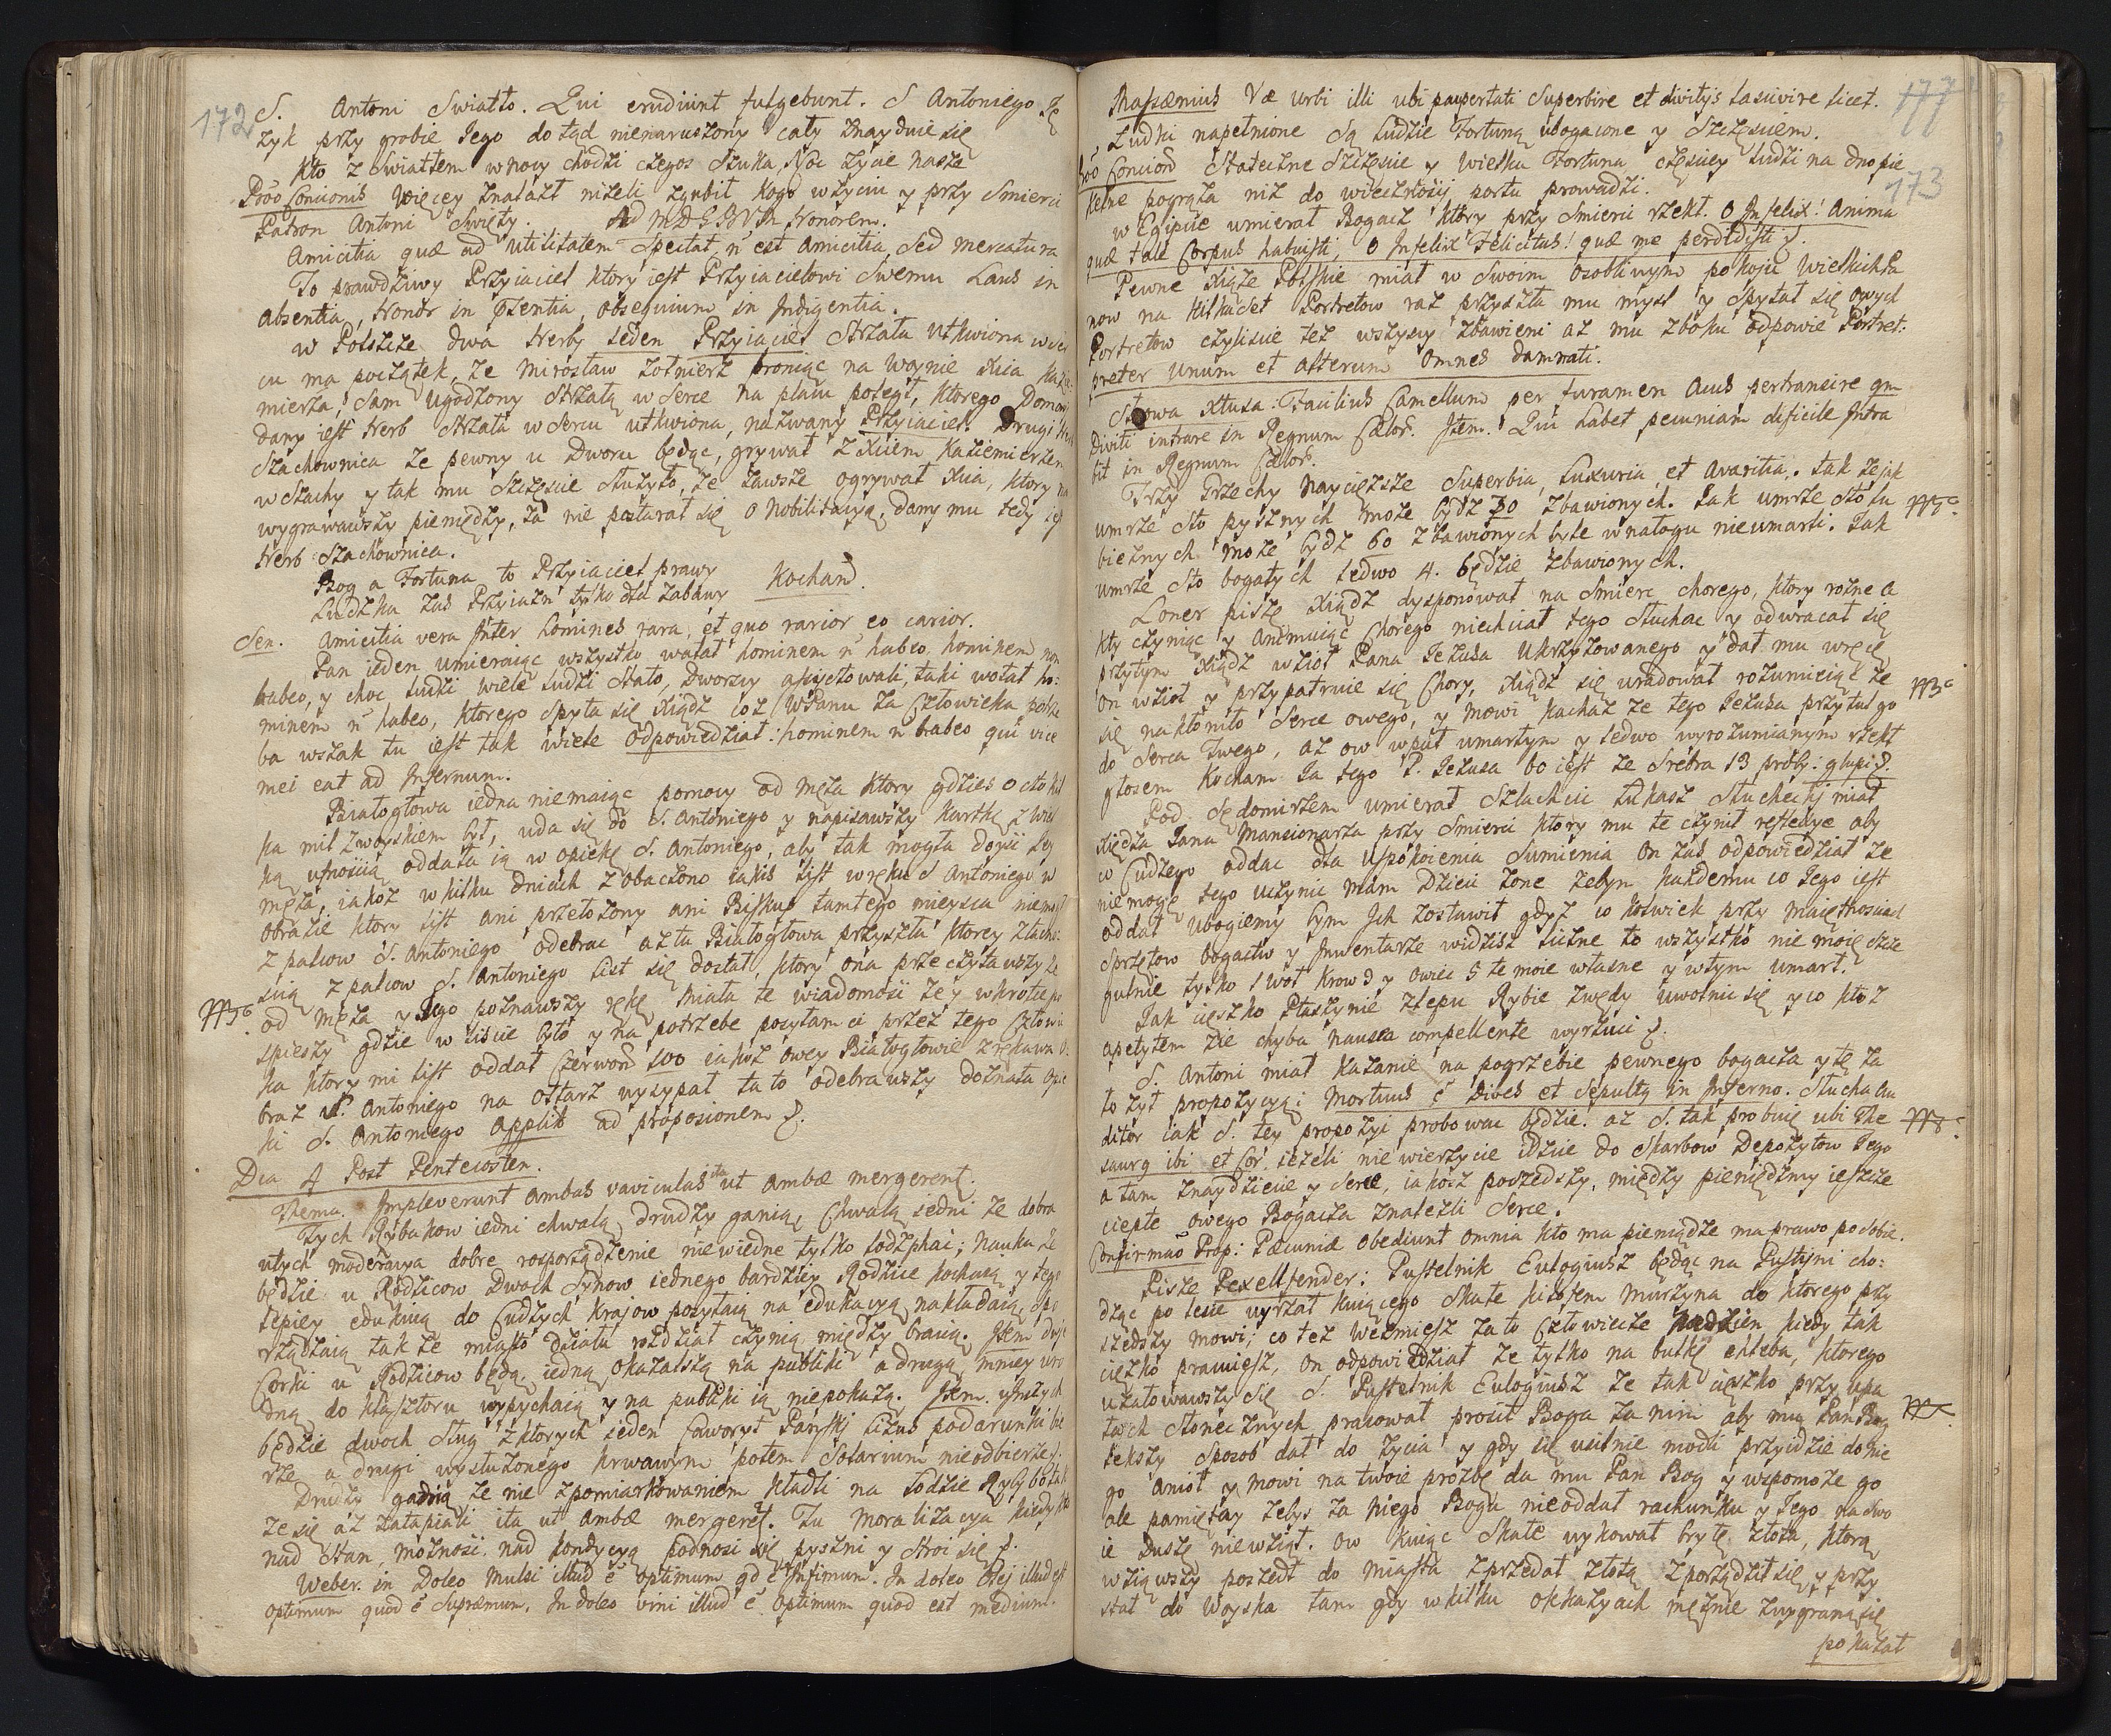 172
S. Antoni Swiatło. Qui erudiunt fulgebunt. S Antoniego Ję
zyk przy grobie Jego dotąd nienaruszony cały znayduie się
Kto z Swiatłem w nocy chodzi czegos szuka, Noc zycie nasze
Więcey znalazł nizeli zgubił kogo w zyciu y przy Smierci
Patron Antoni Swięty. Ad M D G B V M honorem.
Amicitia quæ ad utilitatem Spectat, ñ est amicitia, Sed mercatura
To prawdziwy Przyiaciel ktory iest Przyiacielowi Swemu Laus in
absentia, honor in Pzentia, obsequium in Indigentia.
w Polszcze dwa herby Jeden Przyiaciel Strzała utkwiona w ser
cu ma początek, ze Mirosław zołnierz broniąc na Woynie Xcia Kazi
mierza, Sam ugodzony Strzałą w Serce na placu poległ, ktorego Domowi
dany iest herb Strzała w Sercu utkwiona, nazwany Przyiaciel. Drugi her
Szachownica ze pewny u Dworu będąc, grywał z Xciem Kazimierzem
w Szachy y tak mu Szczęscie Słuzyło, ze zawsze ogrywał Xcia, ktory na
wygrawawszy pieniędzy, za nie postarał się o Nobilitacyą, dany mu tedy iest
herb Szachownica.
Bog a Fortuna to Przyiaciel prawy
Ludzka zas Przyiazn tylko dla zabawy Kochan.
Sen. Amicitia vera Inter homines rara, et quo rarior eo carior.
Pan ieden umieraiąc wszystko wołał hominem ñ habeo, hominem non
habeo, y choc ludzi wiele ludzi Stało, Dworscy assystowali, taki wołał ho:
minem ñ habeo, ktorego Spyta się Xiądz coz WPanu za Człowieka potrze
ba wszak tu iest tak wiele odpowiedział: hominem ñ habeo qui vice
mei eat ad Infernum.
Białogłowa iedna niemaiąc pomocy od męza ktory gdzies o cto kil
ka mil z woyskiem był, uda się do S. Antoniego y napisawszy kartkę z wiel
ką ufnoscią oddała ią w opiekę S. Antoniego, aby tak mogła doysc Jey
męza, iakoz w kilku dniach zobaczono iakis list w ręku S Antoniego w
obrazie ktory list ani przełozony ani Biskup tamtego mieysca niemogł
z palcow S. Antoniego odebrac az ta Białogłowa przyszła ktorey zlatw:
scią z palcow S. Antoniego List się dostał, ktory ona przeczytawszy ze
od męza y Jego poznawszy rękę miała te wiadomosc ze y wkrotce po
spieszy gdzie w liscie było y na potrzebe posyłam ci przez tego Człowie
ka ktory mi list oddał Czerwon 100 iakoz owey Białogłowie z rękawa O:
braz S. Antoniego na ołtarz wysypał ta to odebrawszy doznała opie
ki S. Antoniego applik ad proposionem &.
Dca 4 Post Pentecosten.
Thema. Impleverunt ambas naviculas ita ut ambæ mergerent.
Tych Rybakow iedni chwalą drudzy ganią, Chwalą iedni ze dobra
w tych moderacya dobre rosporządzenie nie w iedne tylko łodz pchac; Nauka ze
będzie u Rodzicow Dwoch Synow iednego bardziey Rodzice kochaią y tego
lepiey edukuią do Cudzych krajow posyłaią na edukacyą nakładaią, spo
rządzaią tak ze miasto działu rozdział czynią między bracią. Item dwie
Corki u Rodzicow będą, iedną okazalszą na publiki a drugą mniey uro
dną do Klasztoru wypychaią y na publiki ią niepokazą. Item. u Inszych
będzie dwoch Sług z ktorych ieden Faworyt Panski Lizus podarunki bie
rze a drugi wysłuzonego krwawym potem Solarium nieodbierze.
Drudzy ganią ze nie z pomiarkowaniem kładli na Łodzie Ryby bo tak
ze się az zatapiali ita ut ambæ mergeret. Tu moralizacya kiedy kto
nad Stan, moznosc, nad kondycyą podnosi się pyszni y stroi się &.
Weber. in Doleo Mulsi illud ẽ optimum qd ẽ Infimum. In doleo Olej illud est
optimum quod ẽ Supræmum, In doleo vini illud ẽ optimum quod est medium.
177
173
Væ urbi illi ubi paupertati Superbire et divitys lascivire licet.
Łudki napełnione Są Ludzie Fortuną ubogacone y Szczęsciem.
Stateczne Szczęscie y Wielka Fortuna częsciey ludzi na dno pie
kelne pogrąza niz do wieczności portu prowadzi.
w Egipcie umierał Bogacz ktory przy Smierci rzekł. O Infelix! Anima
quæ tale Corpus habuisti, O Infelix Felicitas! quæ me perdidisti &.
Pewne Xiąze Polskie miał w Swoim osobliwym pokoju Wielkich Pa
now na kilkaset Portretow raz przyszła mu mysl y spytał się owych
Portretow czyliscie tez wszyscy zbawieni az mu zboku odpowie Portret:
preter unum et alterum omnes damnati.
Słowa Xtusa: Facilius Camellum per foramen Acus pertransire qm
Diviti intrare in Regnum Cælor. Item. Qui habet pecuniam dificile Intra
bit in Regnum Cælor.
Trzy Grzechy Naycięzsze Superbia, Luxuria et Avaritia, tak ze jak
umrze Sto pysznych moze bydz 30 zbawionych. Jak umrze Sto lu
bieznych moze bydz 60 zbawionych byle w nałogu nieumarli. Jak
umrze Sto bogatych ledwo 4. będzie zbawionych.
Loner pisze Xiądz dysponował na Smierc chorego, ktory rozne a
kty czyniąc y animuiąc Chorego niechciał tego słuchac y odwracał się
przytym Xiądz wzioł Pana Jezusa Ukrzyzowanego y dał mu w ręce
on wzioł y przypatruie się Chory, Xiądz się uradował rozumieiąc ze
się nakłoniło Serce owego, y mowi kochaz ze tego Jezusa przytul go
do Serca twego, az ow wpuł umarłym y ledwo wyrozumianym rzekł
głosem Kocham Ja tego P. Jezusa bo iest ze Srebra 13 proby: głupi &.
Pod Sędomirzem umierał Szlachcic Łukasz Słuchecki miał
Xiędza Jana Mansionarza przy Smierci ktory mu te czynił reflexye aby
co Cudzego oddac dla uspokoienia Sumienia On zas odpowiedział ze
niemogę tego uczynic mam Dzieci zone zebym kazdemu co Jego iest
oddał ubogiemy bym Jch zostawił gdyz co koswiek przy Maiętnosciach
Sprzętow bogactw y Inwentarze widzisz liczne to wszystko nie moie Szcze
gulnie tylko 1 Woł Krow 3 y owiec 5 te moie własne y w tym umarł.
Jak cięszko Ptaszynie zlepu Rybie z wędy uwolnic się y co ktoz
apetytem zie chyba nausea compellente wyrzuci &.
S. Antoni miał kazanie na pogrzebie pewnego bogacza y tę za
łozył propozycyą: Mortuus ẽ Dives et Sepultg in Inferno. Słucha Au
ditor iak S. tey propozyci probowac będzie. az S. tak probuie ubi The
saurg ibi et Cor, iezeli nie wierzycie idzcie do Skarbow Depozytow Jego
a tam znaydziecie y Serce, iakosz poszedszy, między pieniędzmy ieszcze
ciepłe owego Bogacza znalezli Serce.
Confirmao Prop: Pæcuniæ obediunt omnia kto ma pieniądze ma prawo po sobie.
Pisze Pexellfender: Pustelnik Eulogiusz będąc na Pustyni cho:
dząc po lesie uyrzał kuiącego Skałe kilofem Murzyna do ktorego przy
szedszy mowi; co tez wezmiesz za to Człowiecze nadzien kiedy tak
cięzko pracuiesz, on odpowiedział ze tylko na bułkę chleba, ktorego
uzałowawszy się S. Pustelnik Eulogiusz ze tak cięszko przy upa
łach słonecznych pracował prosił Boga za nim aby mu Pan Bog
lekszy Sposob dał do zycia y gdy się usilnie modli przyidzie do nie
go Anioł y mowi na twoie prozbę da mu Pan Bog y wspomoze go
ale pamiętay zebys za niego Bogu nieoddał rachunku y Jego na swo
ie Duszę niewziął. Ow kuiąc Skałe wykował bryłę złota, ktorą
wziąwszy poszedł do Miasta zprzedał złoto zporządził się y przy
stał do Woyska tam gdy w kilku okkazyach męznie z wygraną się
pokazał